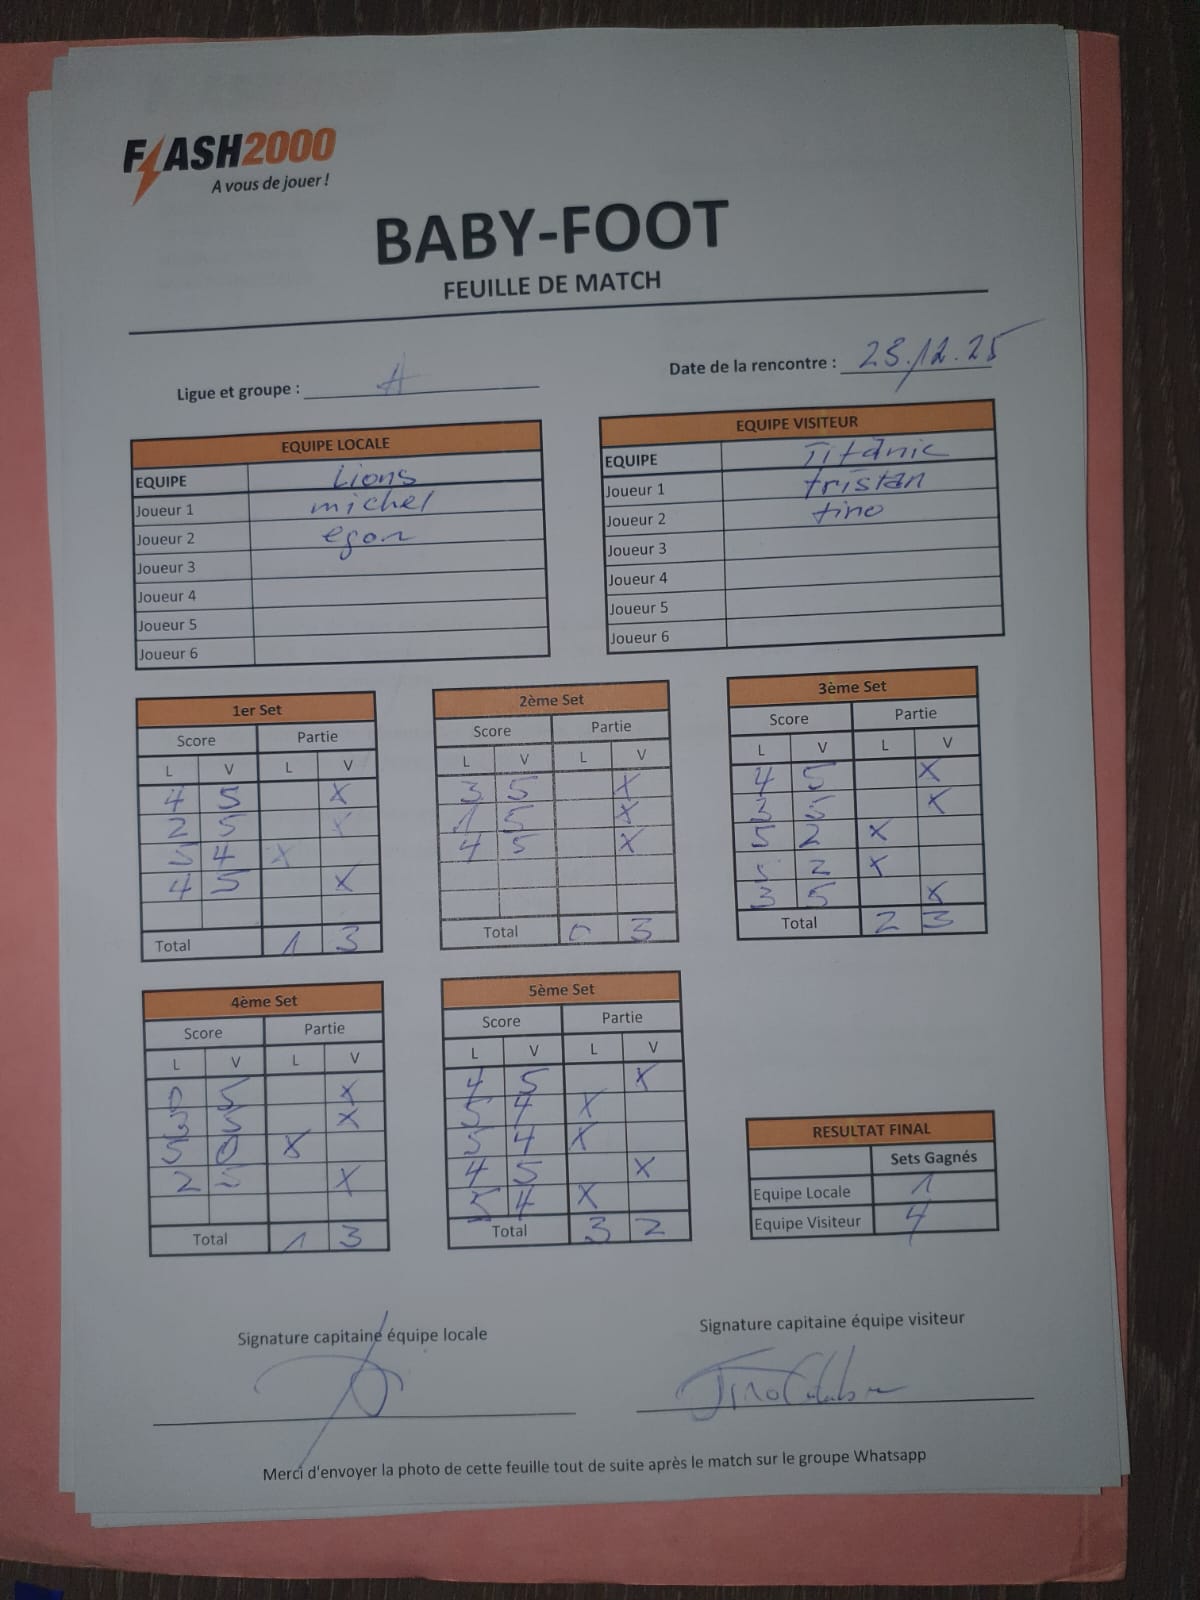 FLASH2000
A vous de jouer !
BABY-FOOT
FEUILLE DE MATCH
Ligue et groupe : A
Date de la rencontre : 23.12.25
EQUIPE LOCALE
EQUIPE Lions
Joueur 1 michel
Joueur 2 egon
Joueur 3
Joueur 4
Joueur 5
Joueur 6
EQUIPE VISITEUR
EQUIPE Titanic
Joueur 1 tristan
Joueur 2 tino
Joueur 3
Joueur 4
Joueur 5
Joueur 6
1er Set
Score Partie
L V L V
4 5 X
2 5 X
5 4 X
4 5 X
Total 1 3
2ème Set
Score Partie
L V L V
3 5 X
1 5 X
4 5 X
Total 0 3
3ème Set
Score Partie
L V L V
4 5 X
3 5 X
5 2 X
5 2 X
3 5 X
Total 2 3
4ème Set
Score Partie
L V L V
0 5 X
3 5 X
5 0 X
2 5 X
Total 1 3
5ème Set
Score Partie
L V L V
4 5 X
5 4 X
5 4 X
4 5 X
5 4 X
Total 3 2
RESULTAT FINAL
Sets Gagnés
Equipe Locale 1
Equipe Visiteur 4
Signature capitaine équipe locale
Signature capitaine équipe visiteur
Tino
Merci d'envoyer la photo de cette feuille tout de suite après le match sur le groupe Whatsapp